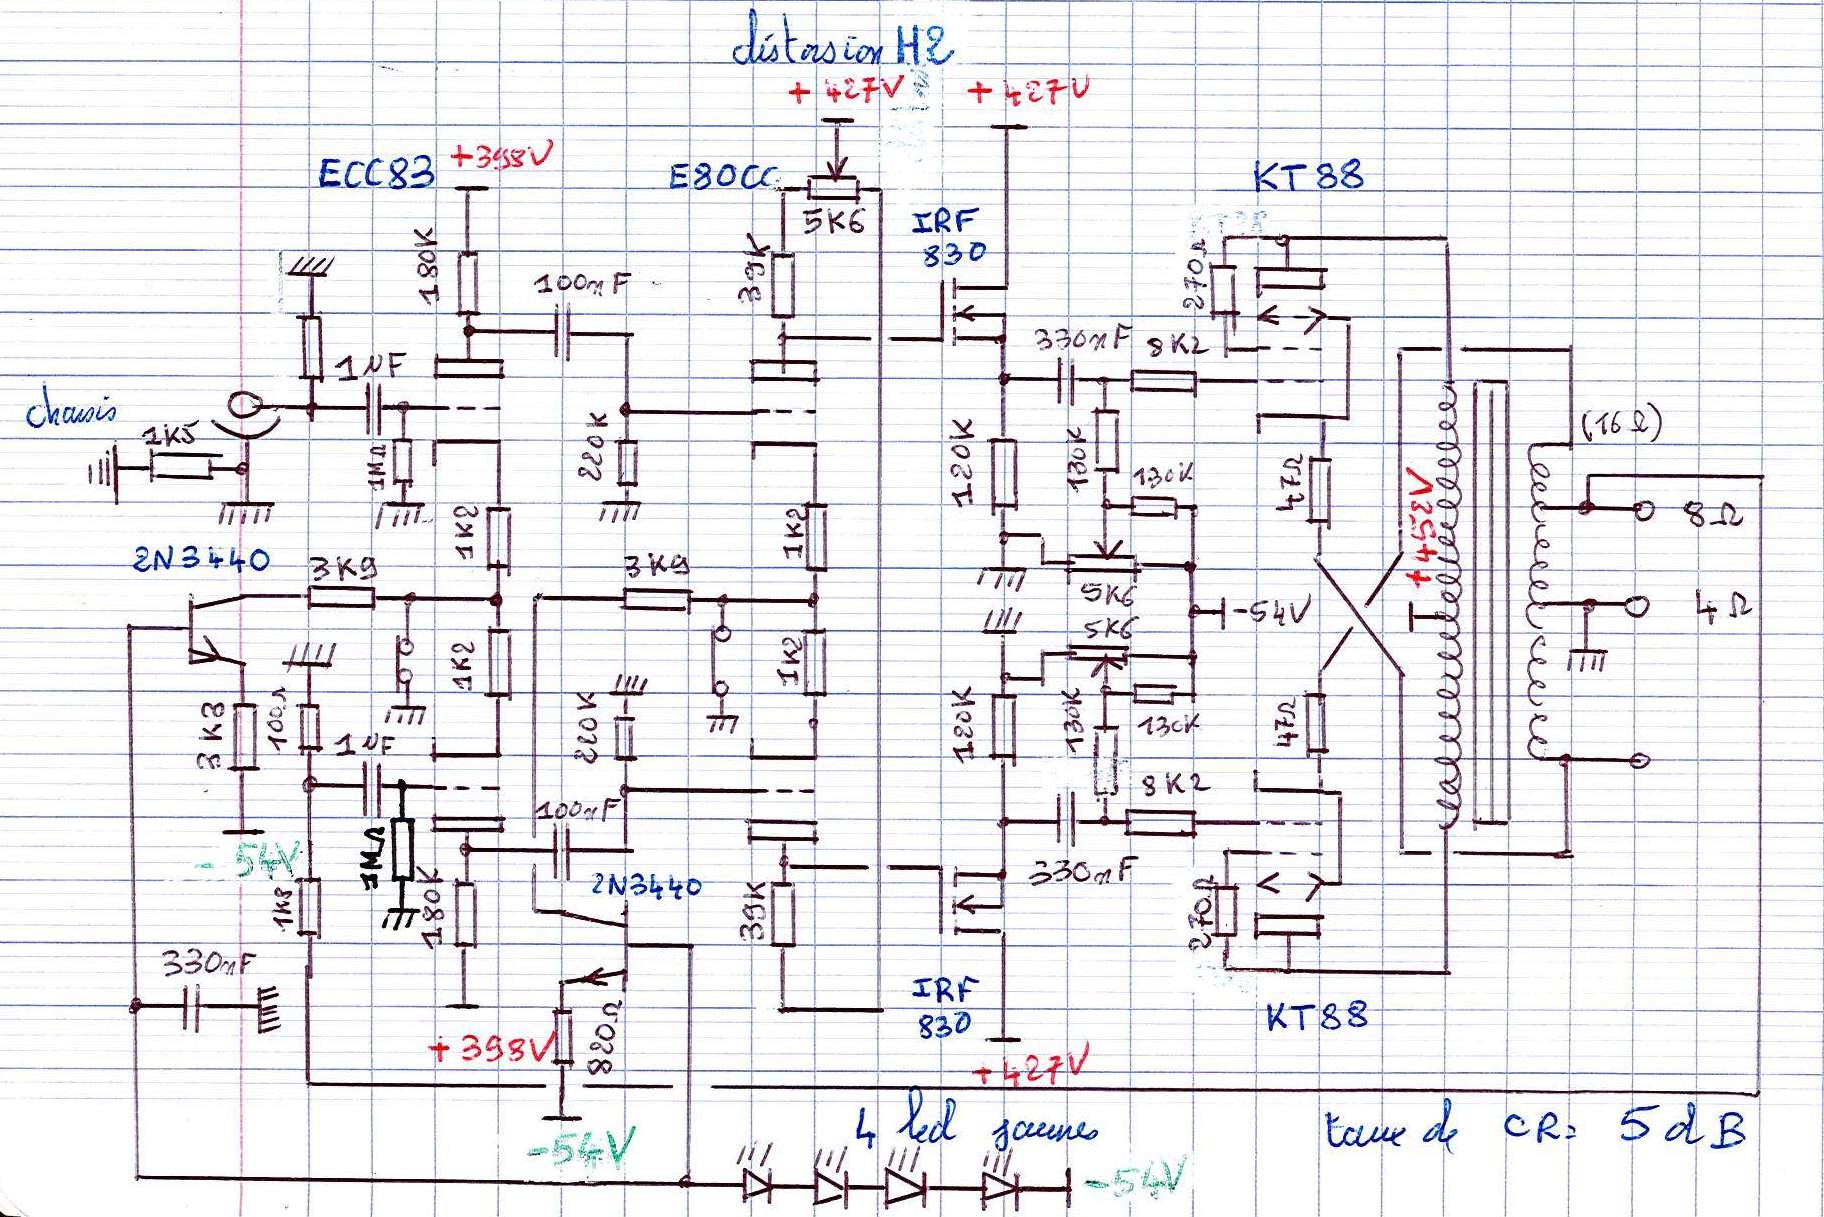 distorsion H2
+427V
+427V
ECC83
+398V
E80CC
KT88
5K6
IRF
830
180K
39K
270Ω
100nF
330nF
8K2
1µF
chassis
1K5
1MΩ
220K
120K
130K
130K
47Ω
(16Ω)
+452V
8Ω
1K2
1K2
2N3440
3K9
3K9
5K6
-54V
4Ω
5K6
1K2
1K2
3K3
100Ω
220K
120K
130K
130K
47Ω
1µF
8K2
100nF
-54V
1MΩ
330nF
2N3440
1K8
180K
39K
270Ω
330nF
IRF
830
KT88
+398V
820Ω
+427V
4 led jaunes
taux de CR= 5dB
-54V
-54V